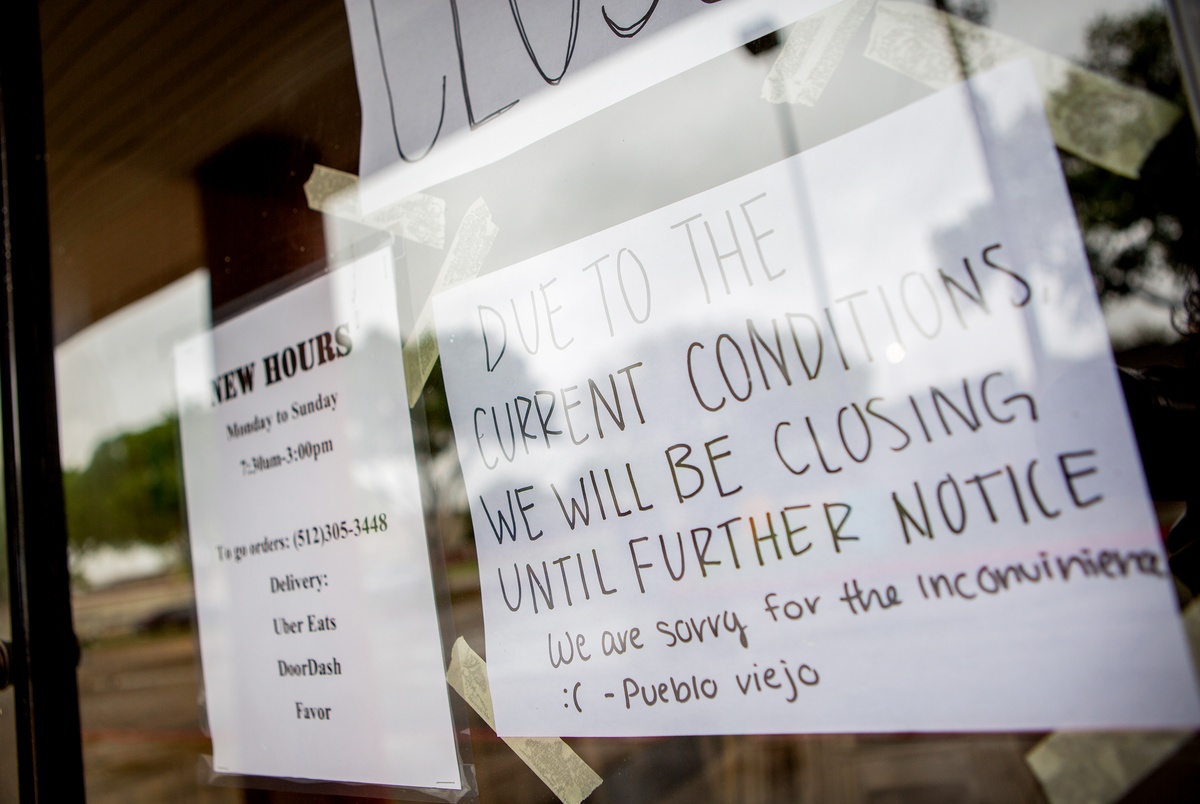 CLOS
NEW HOURS
Monday to Sunday
7:30am-3:00pm
To go orders: (512)305-3448
Delivery:
Uber Eats
DoorDash
Favor
DUE TO THE
CURRENT CONDITIONS,
WE WILL BE CLOSING
UNTIL FURTHER NOTICE
We are sorry for the Inconvinience
:( - Pueblo viejo